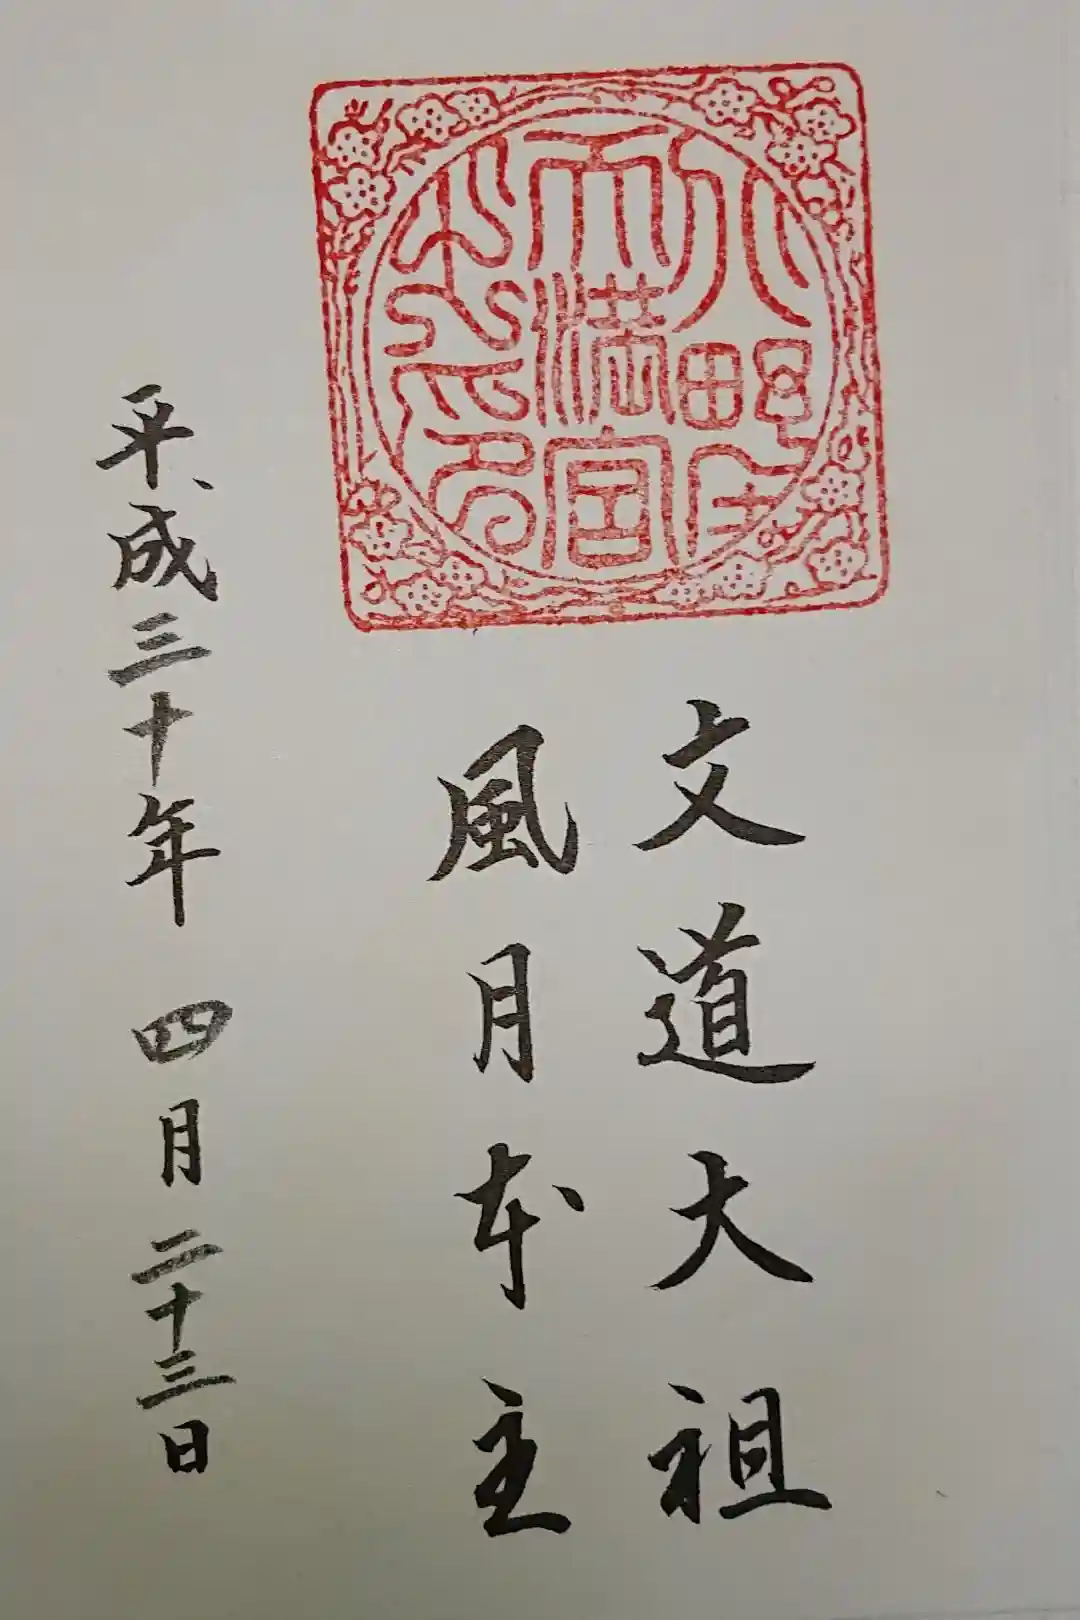 天満宮
文道大祖
風月本主
平成三十年 四月 二十三日